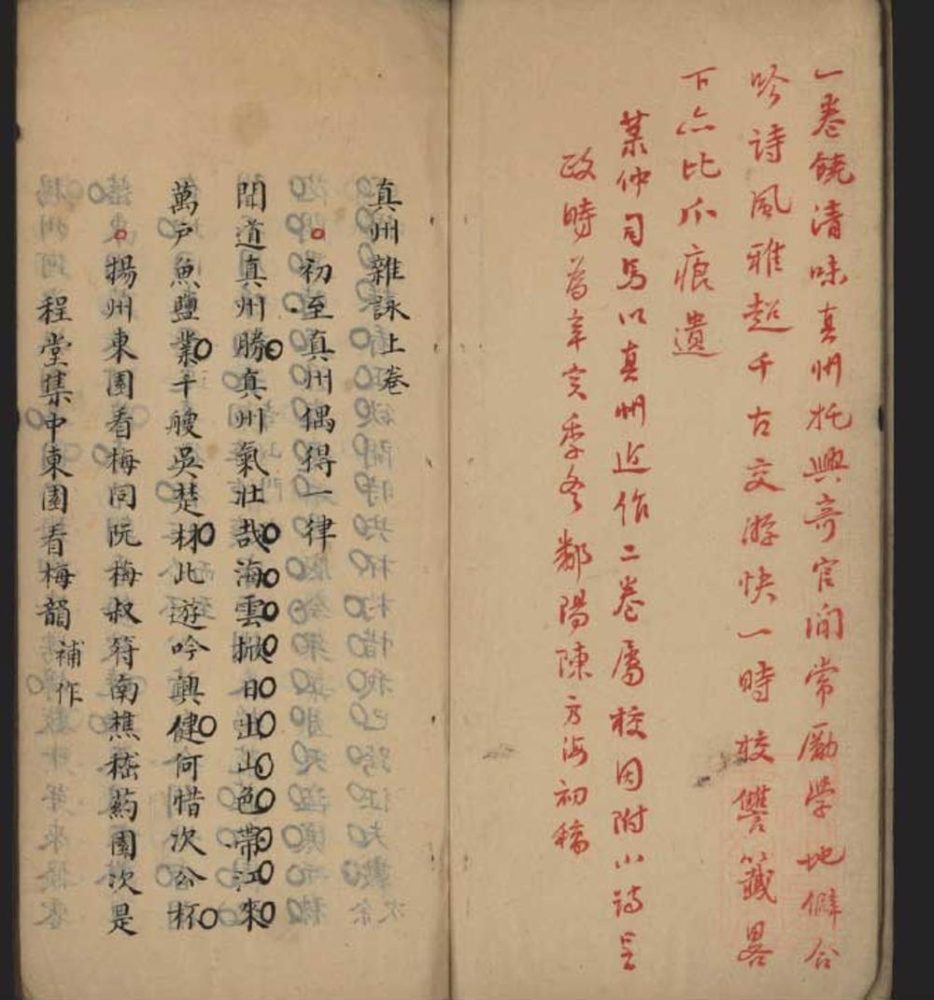 一卷饒清味真州托興奇官閒常勵學地僻合
吟詩風雅超千古交游快一時校讐籤畧
下亦比爪痕遺
仲司馬以真州近作二卷屬校因附小詩呈
政時為辛亥季冬鄱陽陳方海初稿
真州雜詠上卷
初至真州偶得一律
聞道真州勝真州氣壯哉海雲掀日出山色帶江來
萬戶魚鹽業千艘吳楚材此遊吟興健何惜次公杯
揚州東園看梅同阮梅叔符南樵嵇葯園次是
程堂集中東園看梅韻補作